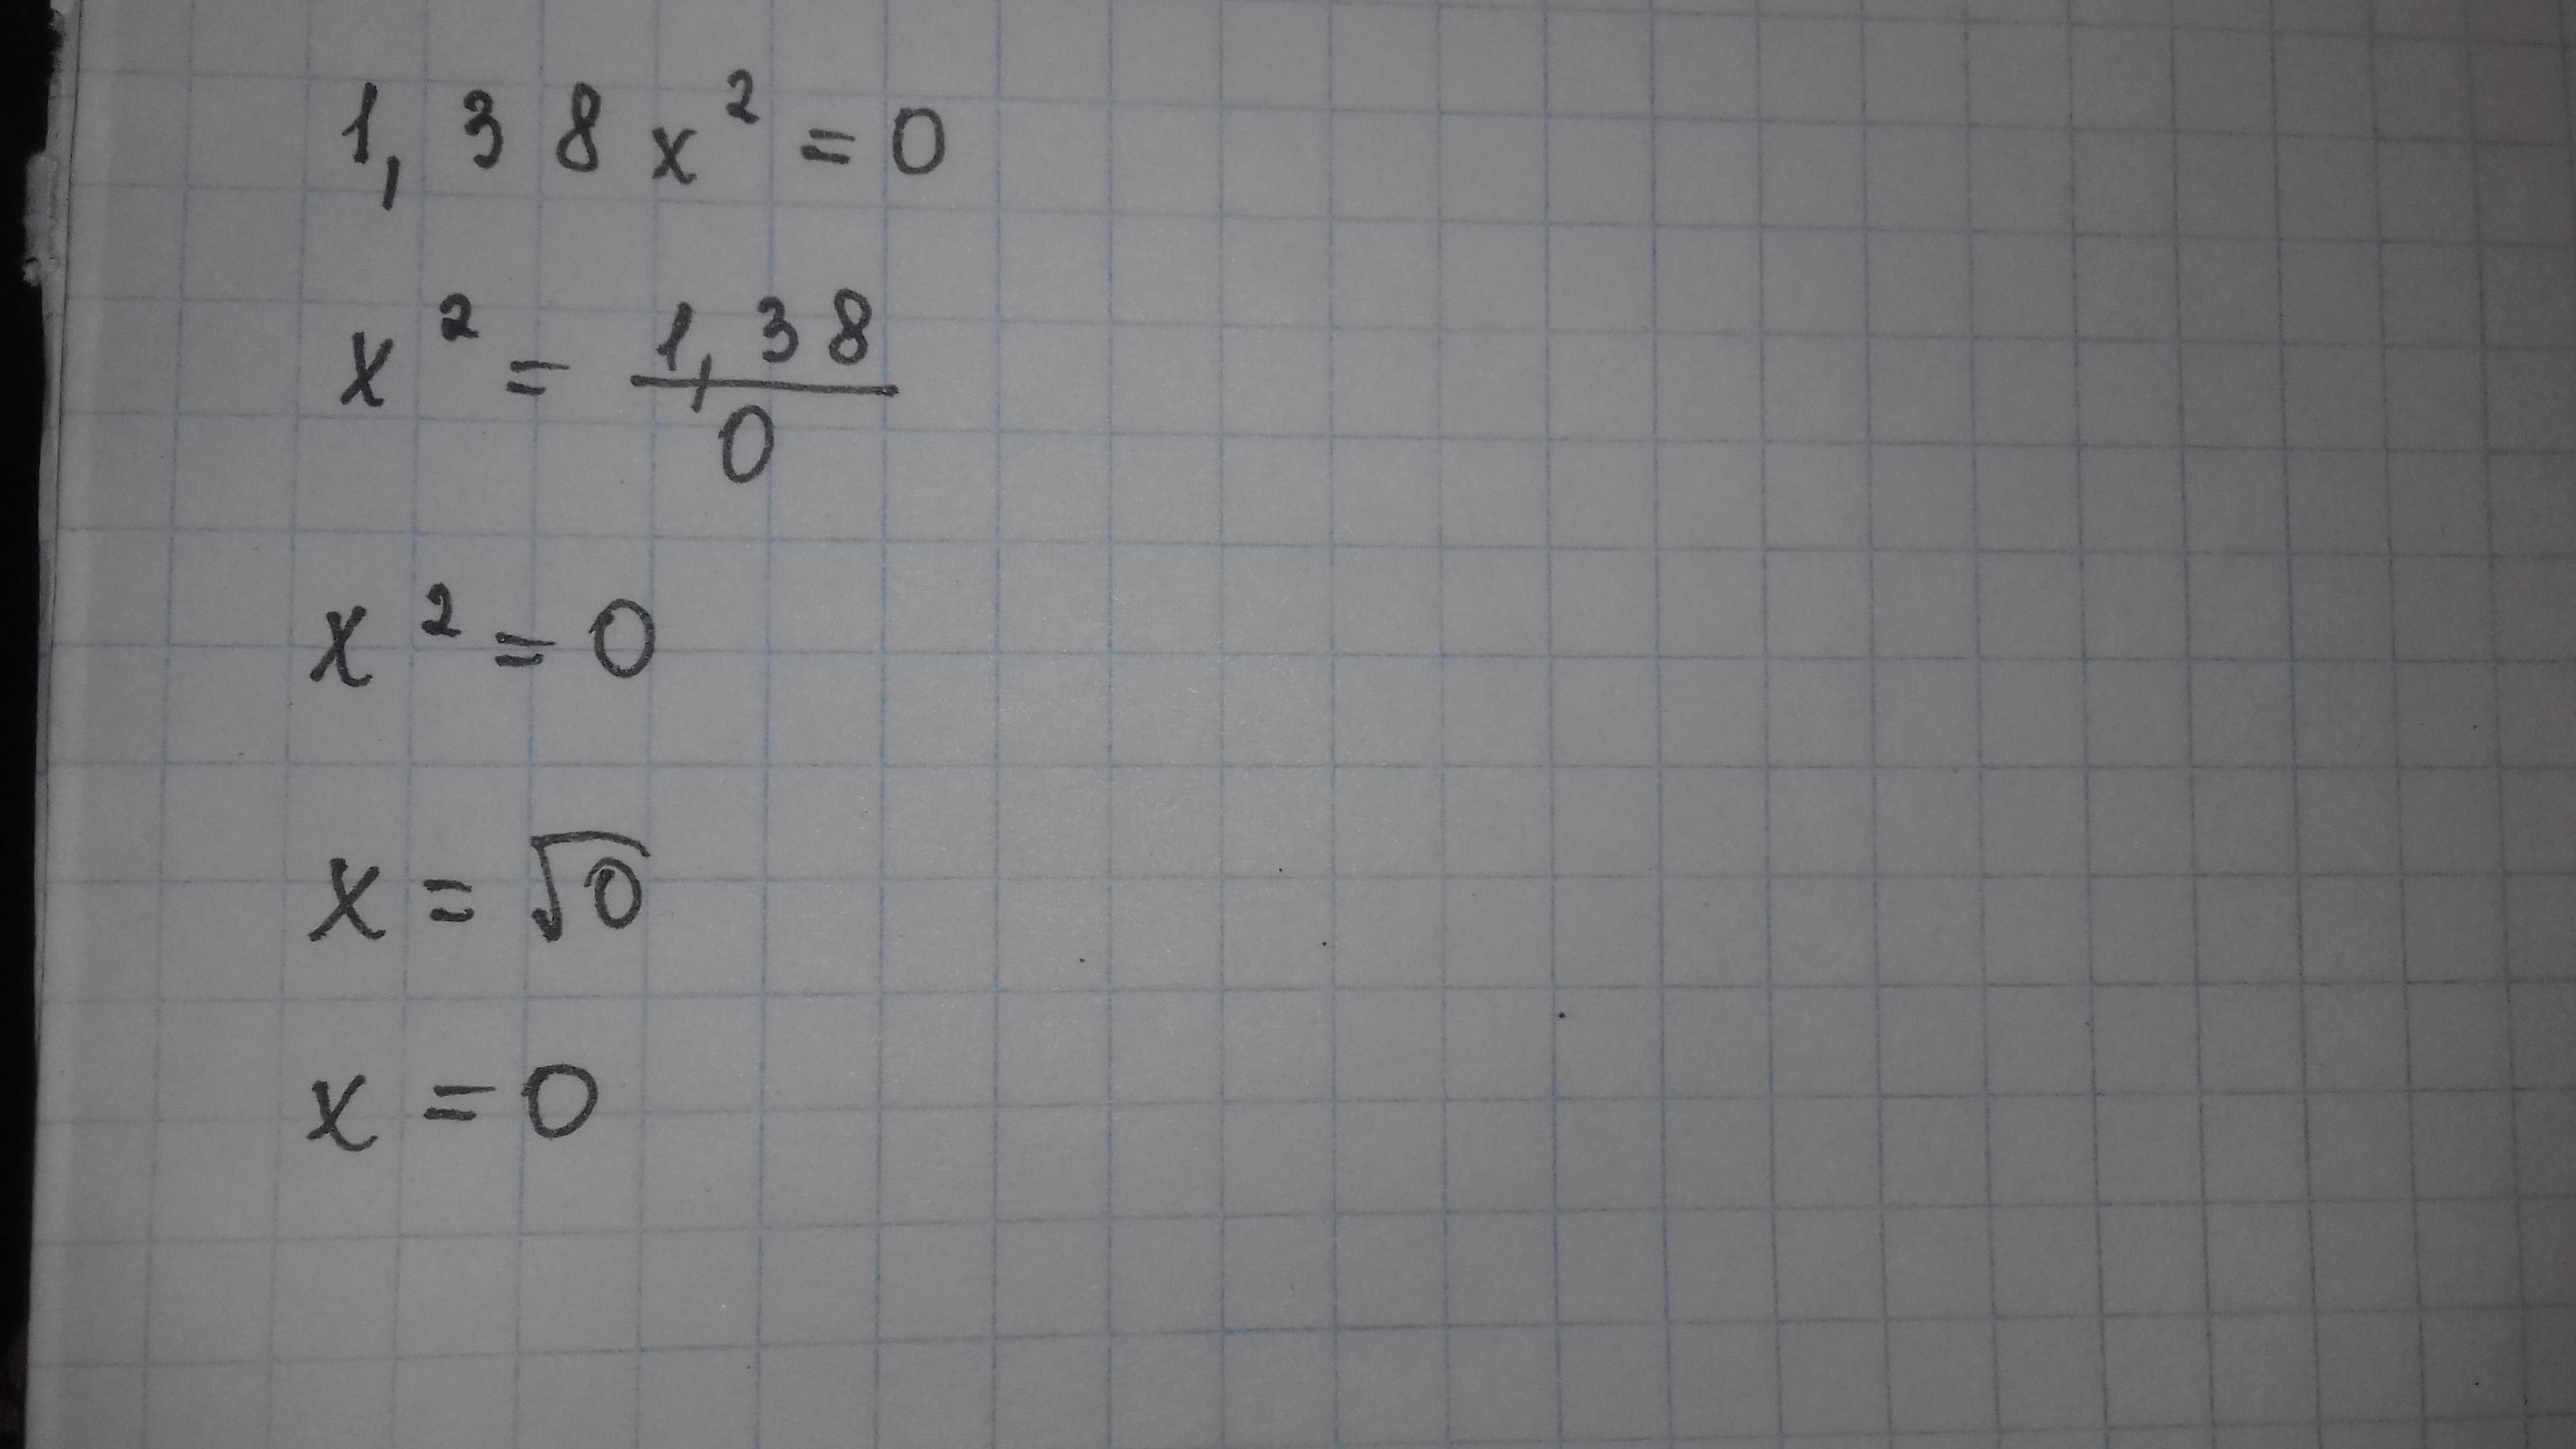 1,38x² = 0
x² = 1,38/0
x² = 0
x = √0
x = 0